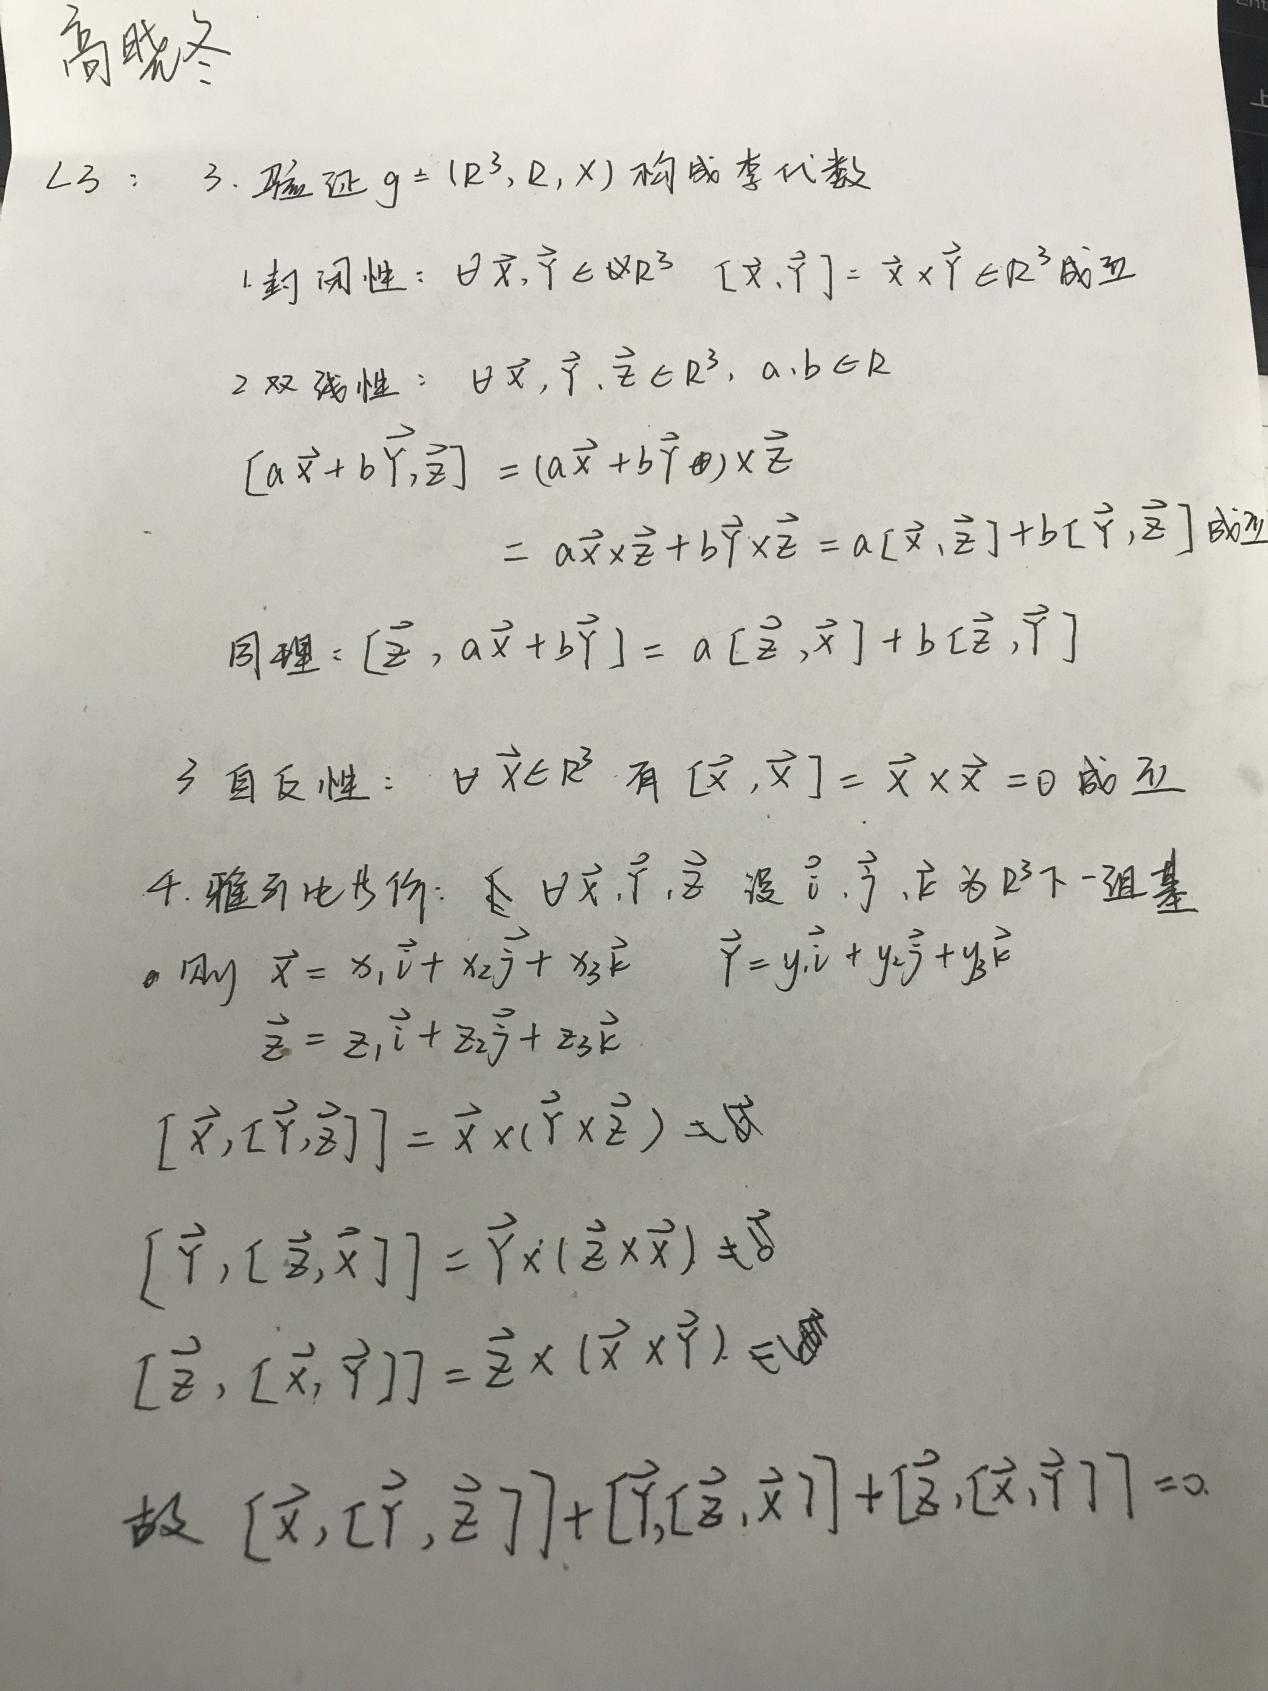 高晓冬
L3: 3. 验证 g = (R³, R, ×) 构成李代数
1. 封闭性: ∀ X⃗, Y⃗ ∈ R³ [X⃗, Y⃗] = X⃗ × Y⃗ ∈ R³ 成立
2 双线性: ∀ X⃗, Y⃗, Z⃗ ∈ R³, a, b ∈ R
[aX⃗ + bY⃗, Z⃗] = (aX⃗ + bY⃗) × Z⃗
= aX⃗ × Z⃗ + bY⃗ × Z⃗ = a[X⃗, Z⃗] + b[Y⃗, Z⃗] 成立
同理: [Z⃗, aX⃗ + bY⃗] = a[Z⃗, X⃗] + b[Z⃗, Y⃗]
3 自反性: ∀ X⃗ ∈ R³ 有 [X⃗, X⃗] = X⃗ × X⃗ = 0 成立
4. 雅可比等价: ∀ X⃗, Y⃗, Z⃗ 设 i⃗, j⃗, k⃗ 为 R³ 下一组基
则 X⃗ = x₁i⃗ + x₂j⃗ + x₃k⃗ Y⃗ = y₁i⃗ + y₂j⃗ + y₃k⃗
Z⃗ = z₁i⃗ + z₂j⃗ + z₃k⃗
[X⃗, [Y⃗, Z⃗]] = X⃗ × (Y⃗ × Z⃗)
[Y⃗, [Z⃗, X⃗]] = Y⃗ × (Z⃗ × X⃗)
[Z⃗, [X⃗, Y⃗]] = Z⃗ × (X⃗ × Y⃗)
故 [X⃗, [Y⃗, Z⃗]] + [Y⃗, [Z⃗, X⃗]] + [Z⃗, [X⃗, Y⃗]] = 0.